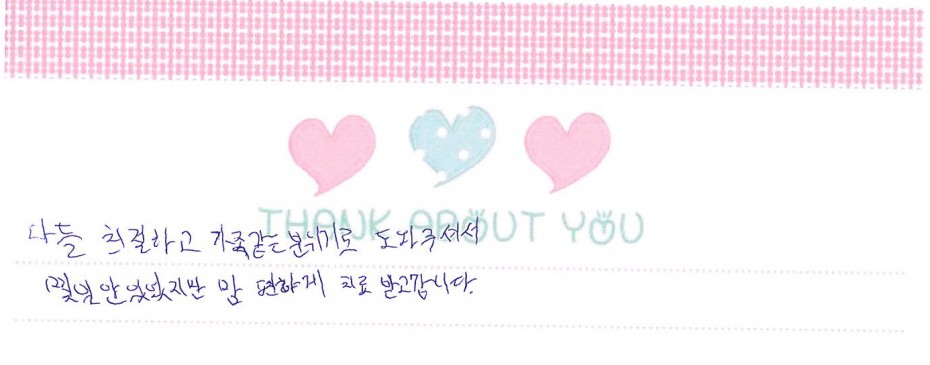 THANK ABOUT YOU
다들 친절하고 가족같은 분위기로 도와주셔서
몇일 안있었지만 맘 편하게 치료 받고갑니다.